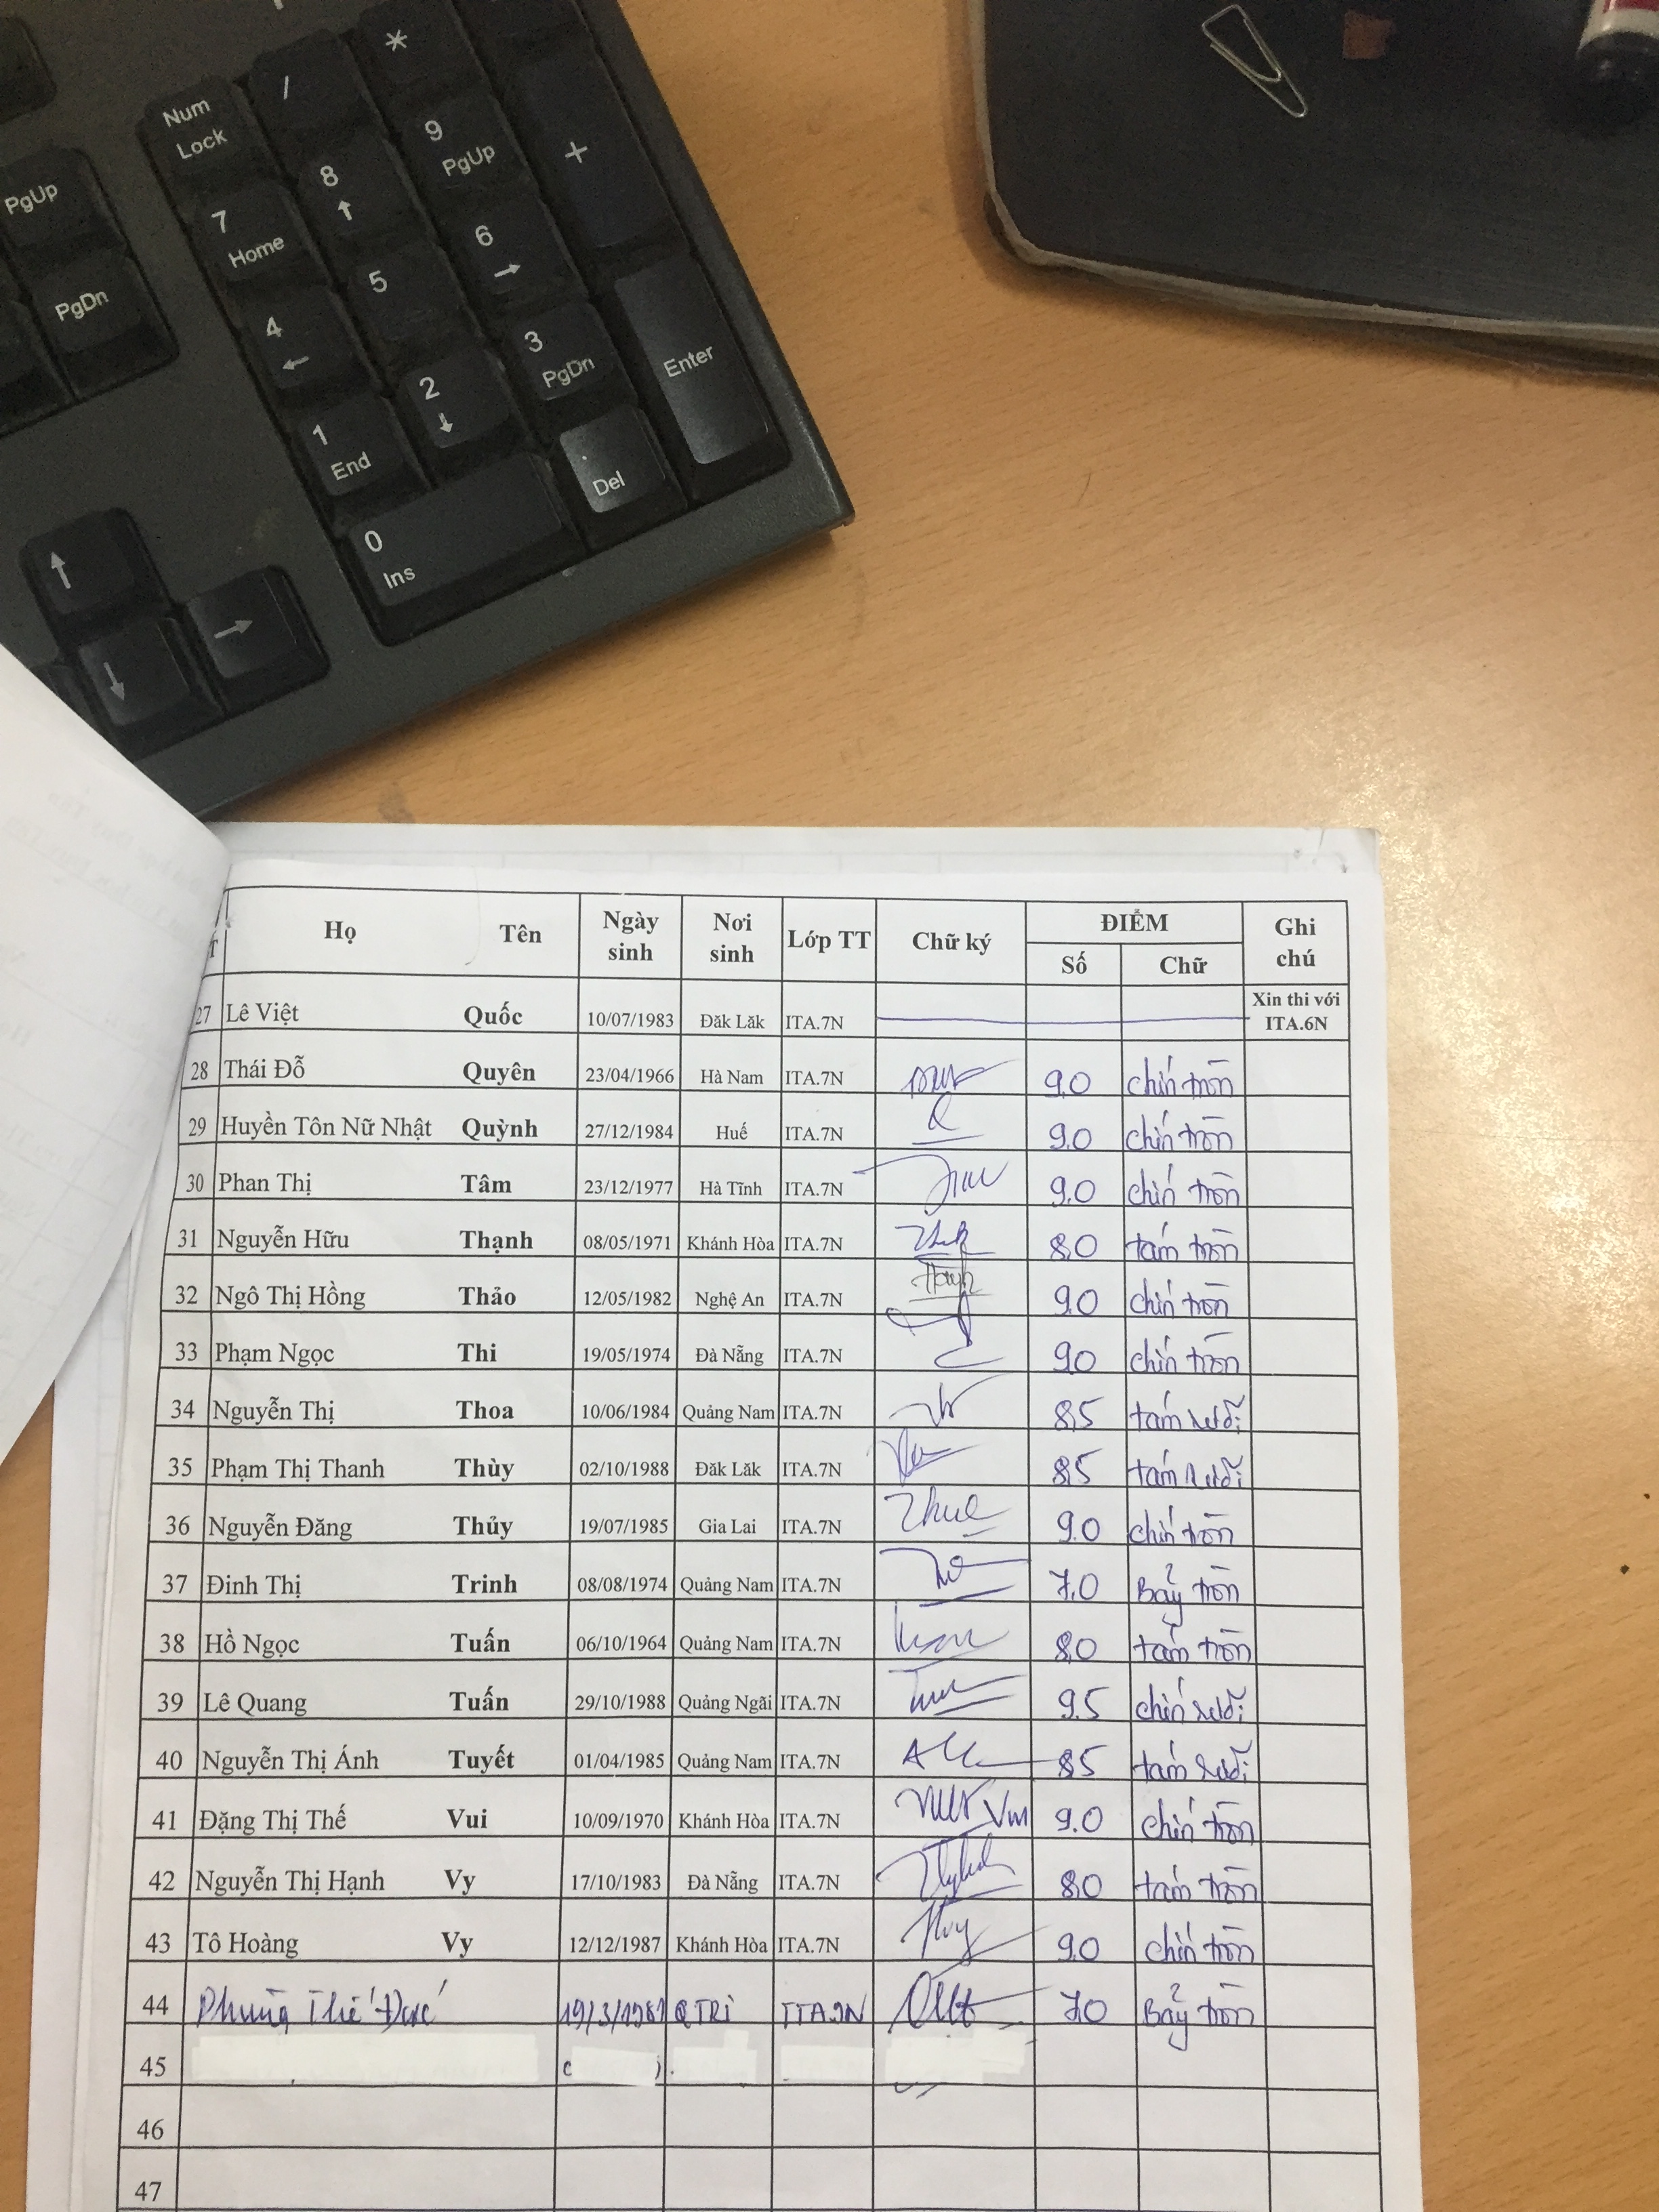 *
/
Num
Lock
9
PgUp
+
8
PgUp
7
Home
6
5
PgDn
4
3
PgDn
Enter
2
1
End
.
Del
0
Ins
Họ Tên Ngày sinh Nơi sinh Lớp TT Chữ ký ĐIỂM Ghi chú
Số Chữ
27 Lê Việt Quốc 10/07/1983 Đăk Lăk ITA.7N Xin thi với ITA.6N
28 Thái Đỗ Quyên 23/04/1966 Hà Nam ITA.7N 9.0 chín tròn
29 Huyền Tôn Nữ Nhật Quỳnh 27/12/1984 Huế ITA.7N 9.0 chín tròn
30 Phan Thị Tâm 23/12/1977 Hà Tĩnh ITA.7N 9.0 chín tròn
31 Nguyễn Hữu Thạnh 08/05/1971 Khánh Hòa ITA.7N 8.0 tám tròn
32 Ngô Thị Hồng Thảo 12/05/1982 Nghệ An ITA.7N 9.0 chín tròn
33 Phạm Ngọc Thi 19/05/1974 Đà Nẵng ITA.7N 9.0 chín tròn
34 Nguyễn Thị Thoa 10/06/1984 Quảng Nam ITA.7N 8.5 tám rưỡi
35 Phạm Thị Thanh Thùy 02/10/1988 Đăk Lăk ITA.7N 8.5 tám rưỡi
36 Nguyễn Đăng Thủy 19/07/1985 Gia Lai ITA.7N 9.0 chín tròn
37 Đinh Thị Trinh 08/08/1974 Quảng Nam ITA.7N 7.0 Bảy tròn
38 Hồ Ngọc Tuấn 06/10/1964 Quảng Nam ITA.7N 8.0 tám tròn
39 Lê Quang Tuấn 29/10/1988 Quảng Ngãi ITA.7N 9.5 chín rưỡi
40 Nguyễn Thị Ánh Tuyết 01/04/1985 Quảng Nam ITA.7N 8.5 tám rưỡi
41 Đặng Thị Thế Vui 10/09/1970 Khánh Hòa ITA.7N 9.0 chín tròn
42 Nguyễn Thị Hạnh Vy 17/10/1983 Đà Nẵng ITA.7N 8.0 tám tròn
43 Tô Hoàng Vy 12/12/1987 Khánh Hòa ITA.7N 9.0 chín tròn
44 Phùng Thế Đức 19/3/1981 QTRỊ 7.0 Bảy tròn
45
46
47